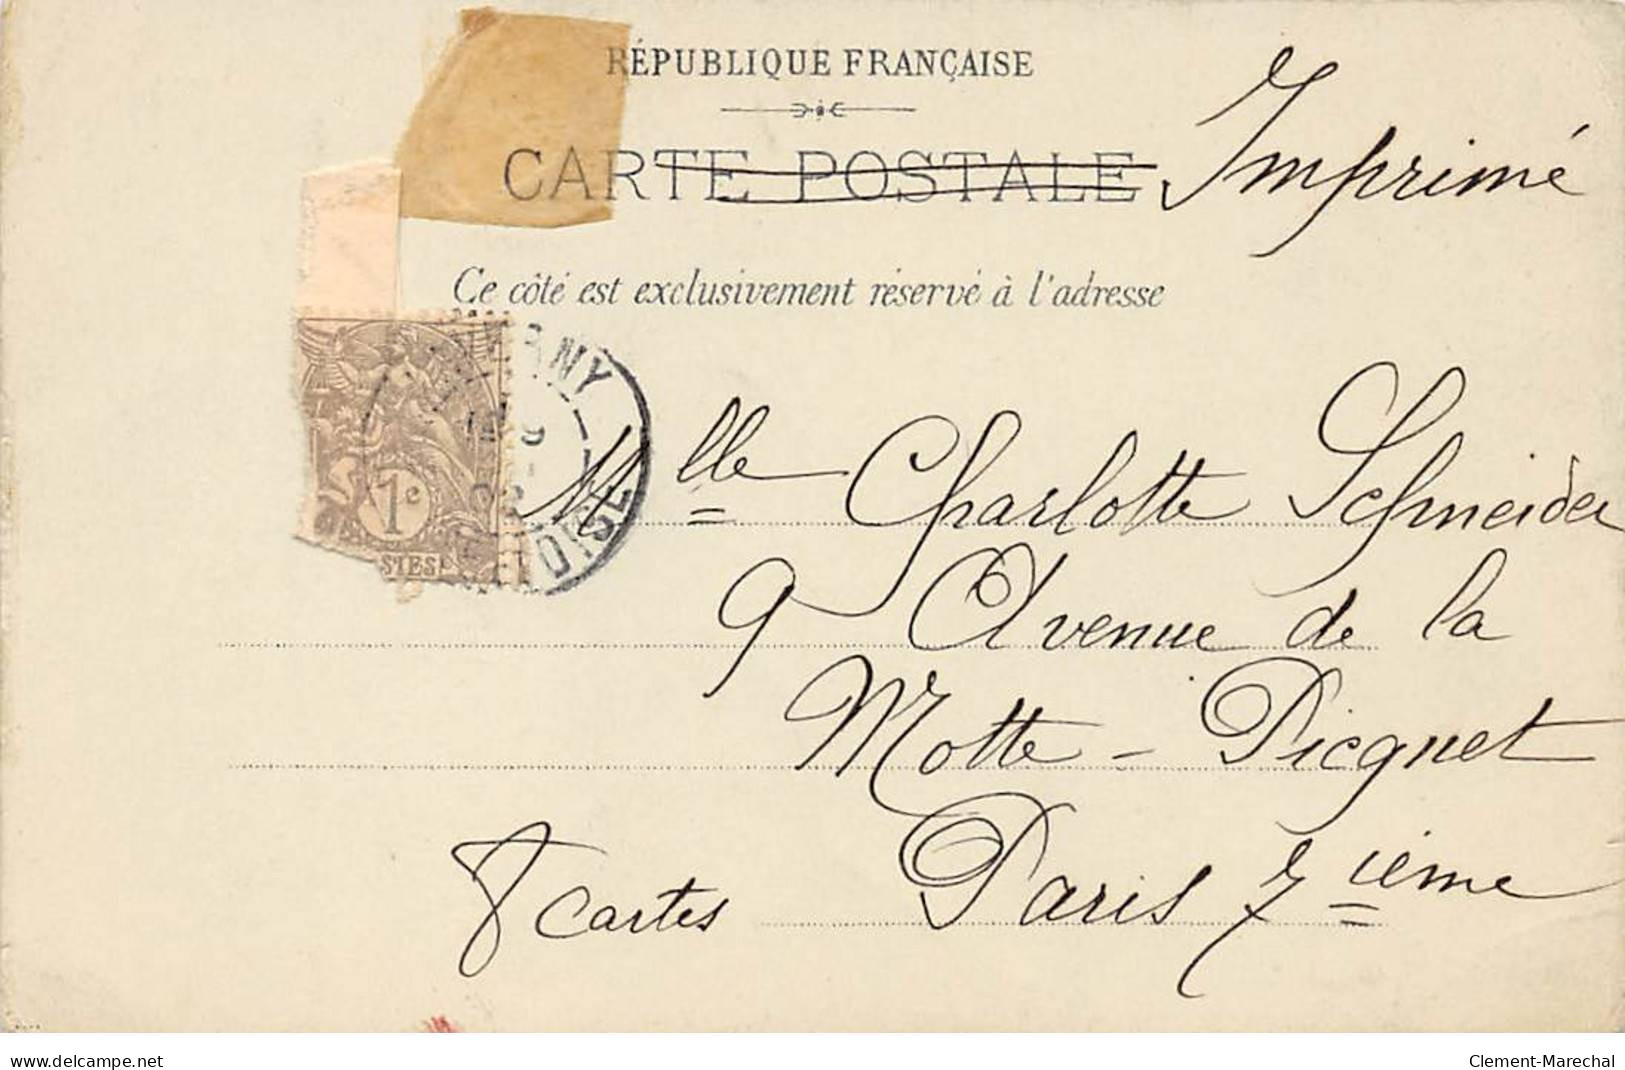 RÉPUBLIQUE FRANÇAISE
CARTE POSTALE Imprimé
Ce côté est exclusivement réservé à l'adresse
1c
STES
Mlle Charlotte Schneider
9 Avenue de la
Motte-Picquet
Paris 7ième
8 cartes
www.delcampe.net
Clement-Marechal